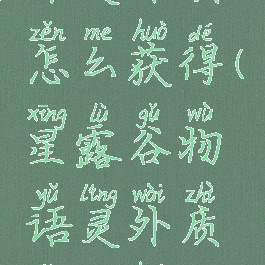 zěn me huò dé
怎么获得(
xīng lù gǔ wù
星露谷物
yǔ líng wài zhà
语灵外质